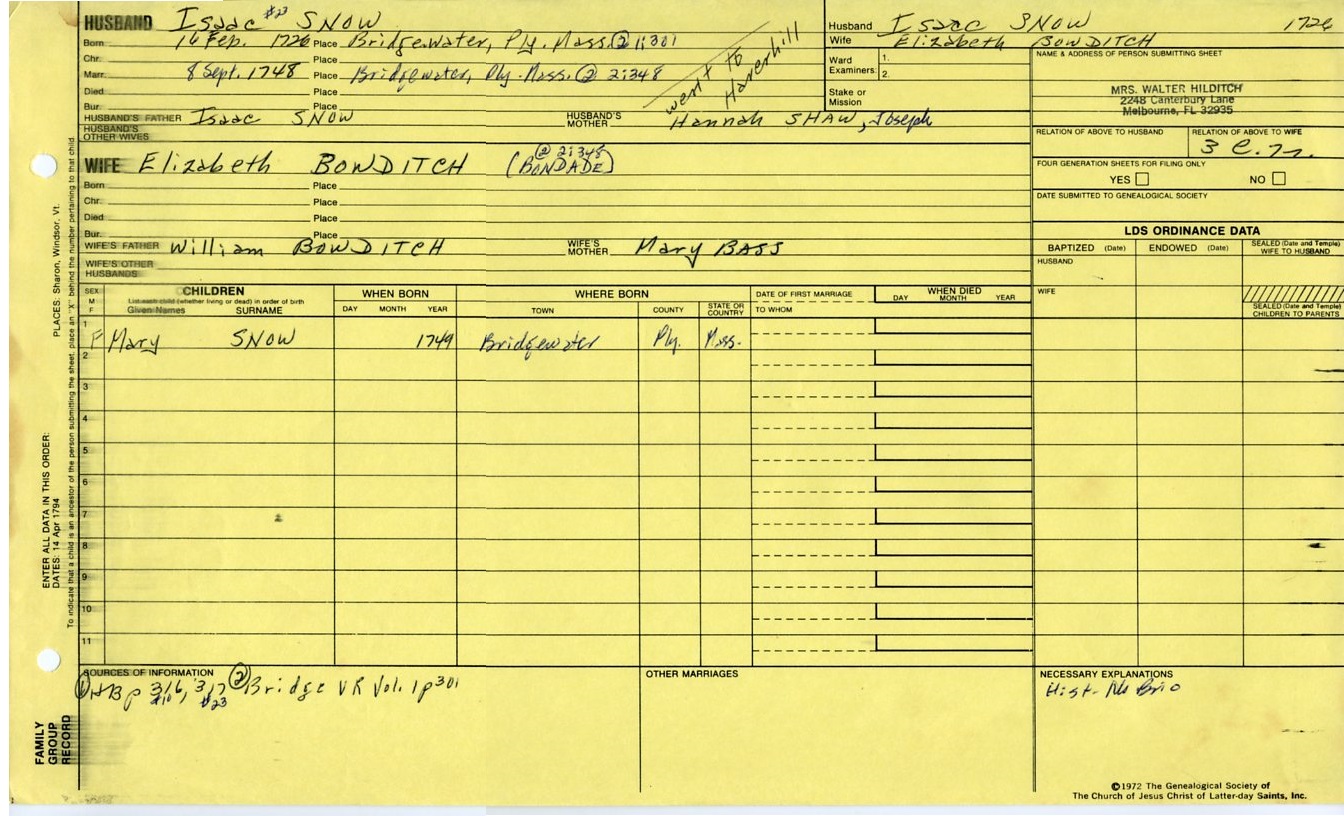 HUSBAND Isaac #23 SNOW
Born 16 Feb. 1726 Place Bridgewater, Ply. Mass. @ 1:301
Chr. Place
Marr. 8 Sept. 1748 Place Bridgewater, Ply. Mass. @ 2:348
went to Haverhill
Died Place
Bur. Place
HUSBAND'S FATHER Isaac SNOW HUSBAND'S MOTHER Hannah SHAW, Joseph
HUSBAND'S OTHER WIVES
WIFE Elizabeth BOWDITCH (@ 2:348 BONDADE)
Born Place
Chr. Place
Died Place
Bur. Place
WIFE'S FATHER William BOWDITCH WIFE'S MOTHER Mary BASS
WIFE'S OTHER HUSBANDS
Husband Isaac SNOW 1726
Wife Elizabeth BOWDITCH
Ward Examiners: 1. 2.
Stake or Mission
NAME & ADDRESS OF PERSON SUBMITTING SHEET
MRS. WALTER HILDITCH
2248 Canterbury Lane
Melbourne, FL 32935
RELATION OF ABOVE TO HUSBAND RELATION OF ABOVE TO WIFE
FOUR GENERATION SHEETS FOR FILING ONLY
YES NO
DATE SUBMITTED TO GENEALOGICAL SOCIETY
LDS ORDINANCE DATA
BAPTIZED (Date) ENDOWED (Date) SEALED (Date and Temple) WIFE TO HUSBAND
HUSBAND
WIFE
SEALED (Date and Temple) CHILDREN TO PARENTS
SEX M F CHILDREN List each child (whether living or dead) in order of birth Given Names SURNAME WHEN BORN DAY MONTH YEAR WHERE BORN TOWN COUNTY STATE OR COUNTRY DATE OF FIRST MARRIAGE TO WHOM WHEN DIED DAY MONTH YEAR
1 F Mary SNOW 1749 Bridgewater Ply. Mass.
2
3
4
5
6
7
8
9
10
11
SOURCES OF INFORMATION
① HB p 316, 317 #23 ② Bridge VR Vol. 1 p 301
OTHER MARRIAGES
NECESSARY EXPLANATIONS
©1972 The Genealogical Society of
The Church of Jesus Christ of Latter-day Saints, Inc.
PLACES: Sharon, Windsor, Vt.
To indicate that a child is an ancestor of the person submitting the sheet, place an "X" behind the number pertaining to that child.
ENTER ALL DATA IN THIS ORDER:
DATES: 14 Apr 1794
FAMILY
GROUP
RECORD